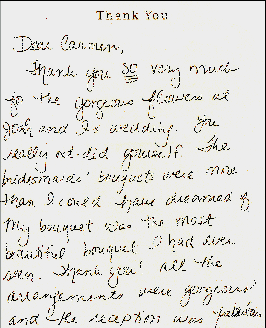 Thank You
Dear Carmen,
Thank you so very much
for the gorgeous flowers at
Josh and I's wedding. You
really out-did yourself. The
bridesmaids' bouquet were more
than I could have dreamed of
My bouquet was the most
beautiful bouquet I had ever
seen. Thank you! All the
arrangements were gorgeous
and the reception was